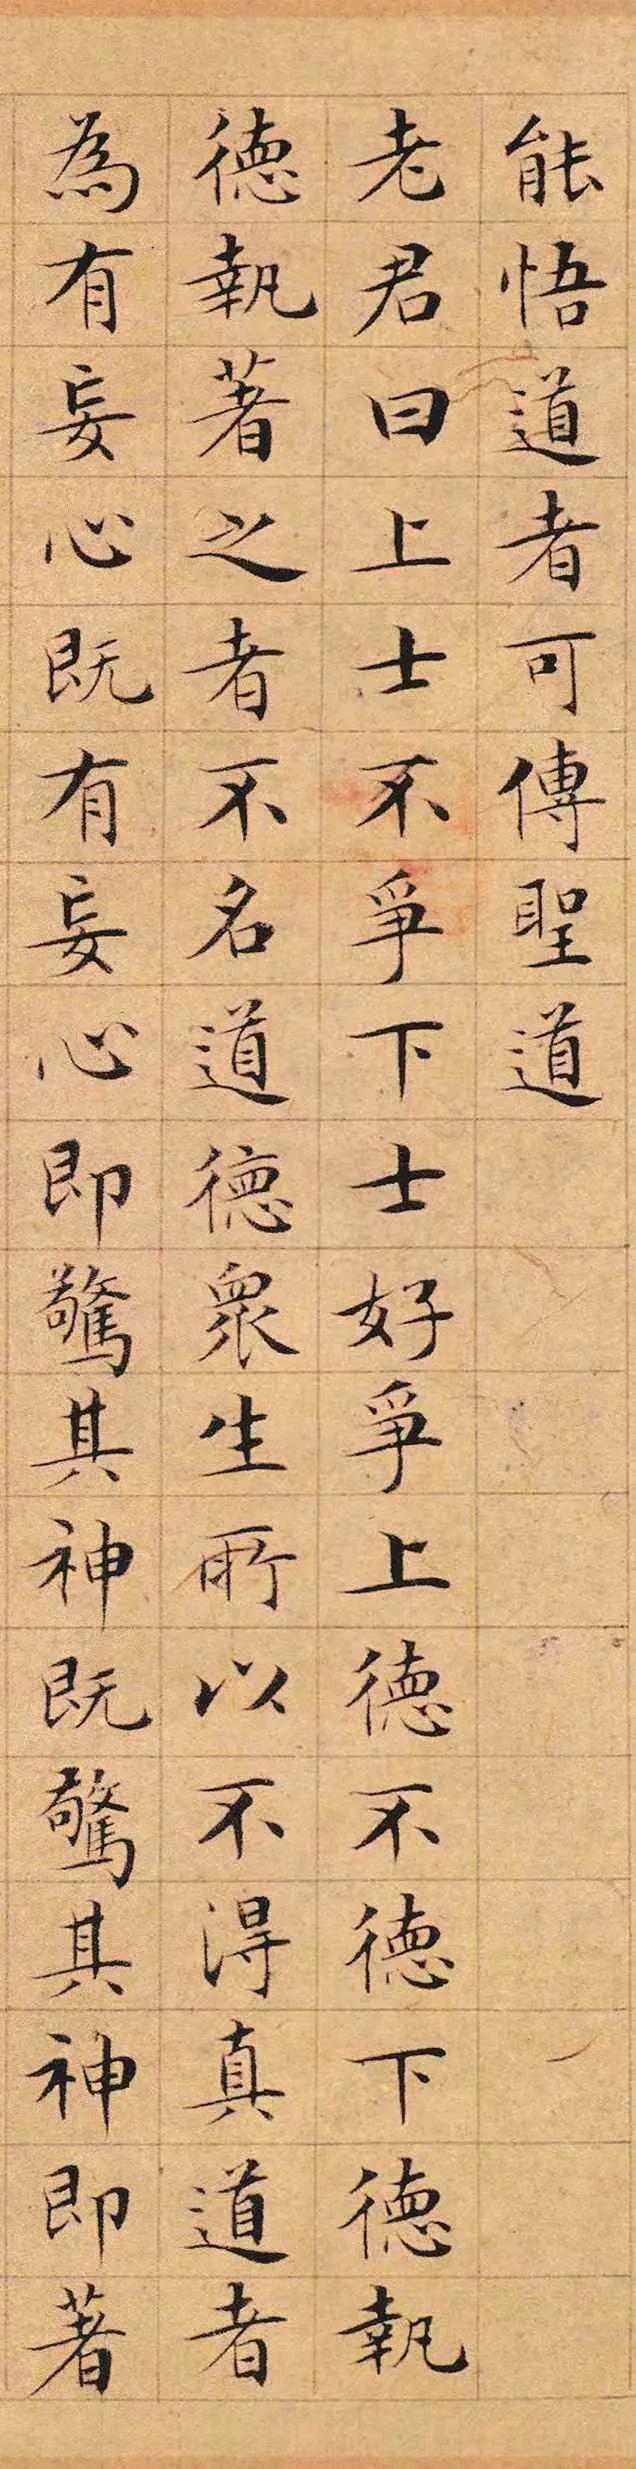 能悟道者可傳聖道
老君曰上士不爭下士好爭上德不德下德執
德執著之者不名道德衆生所以不得真道者
為有妄心既有妄心即驚其神既驚其神即著